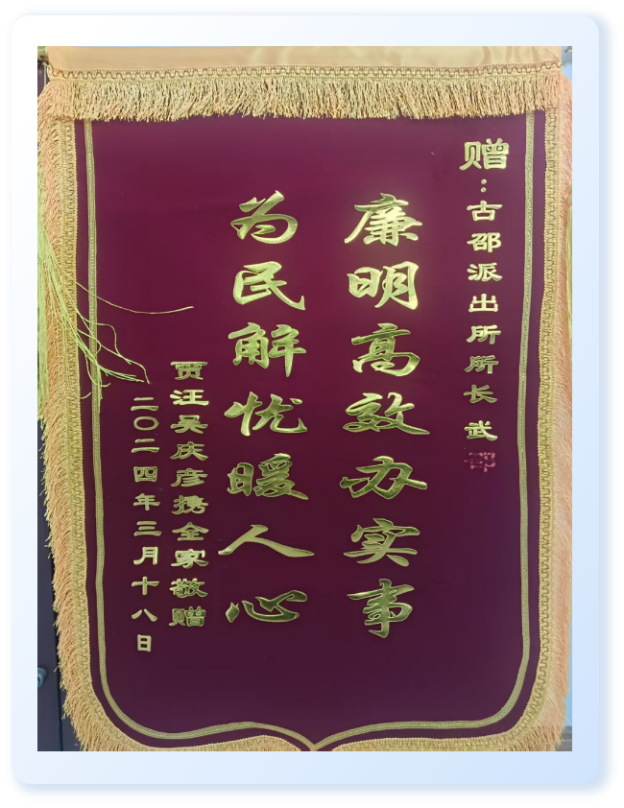 赠：古邵派出所所长 武
廉明高效办实事
为民解忧暖人心
贾汪吴庆彦携全家敬赠
二〇二四年三月十八日